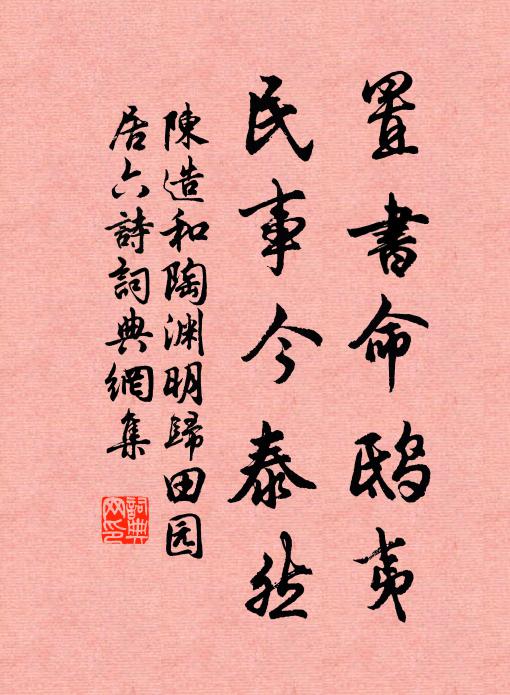 置書命鴟夷
民事今泰然
陳造和陶渊明歸田园
居六詩詞典網集
詞典
网印